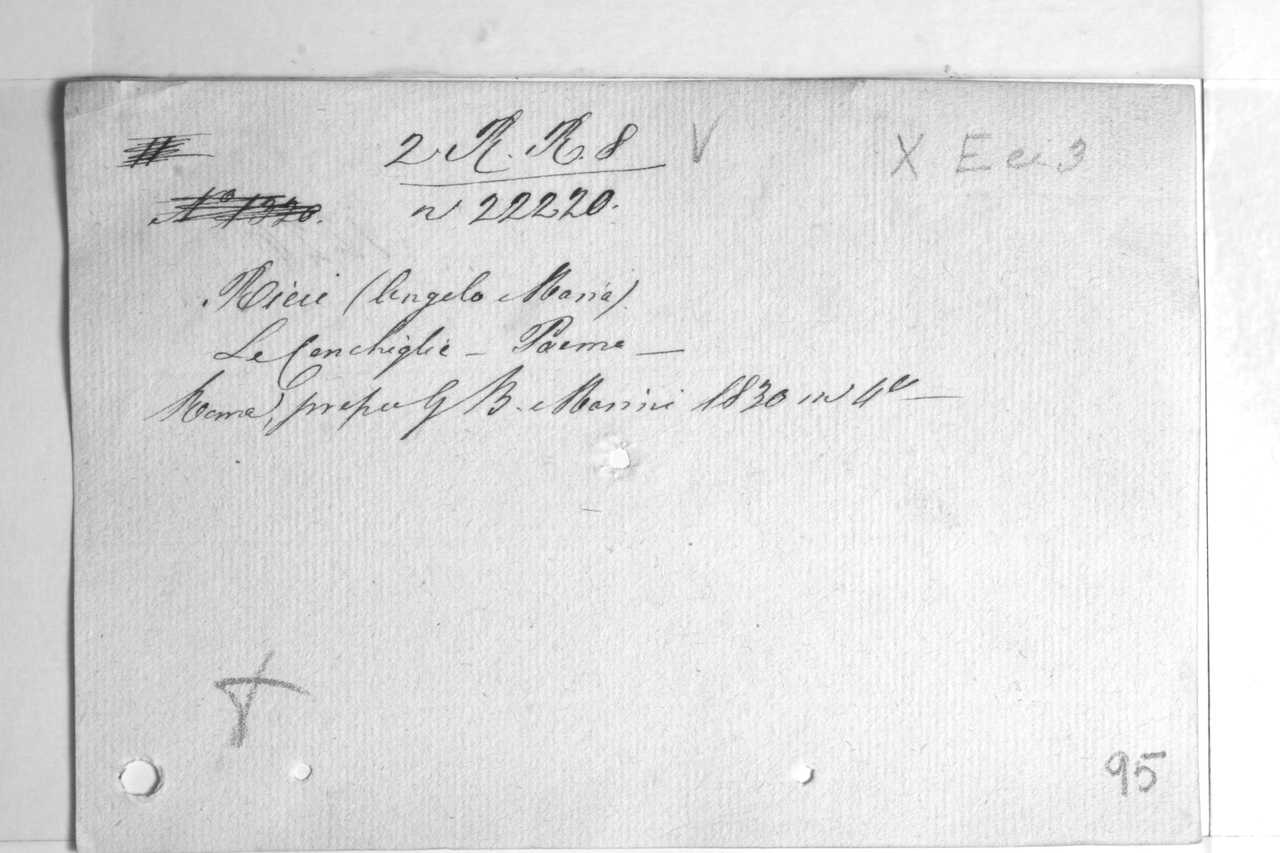 2 R. R. 8 V X E cii 3
N° 1320.
n 22220.
Ricci (Angelo Maria)
Le Conchiglie – Poema —
Roma, presso G B. Marini 1830 in 4° —
95